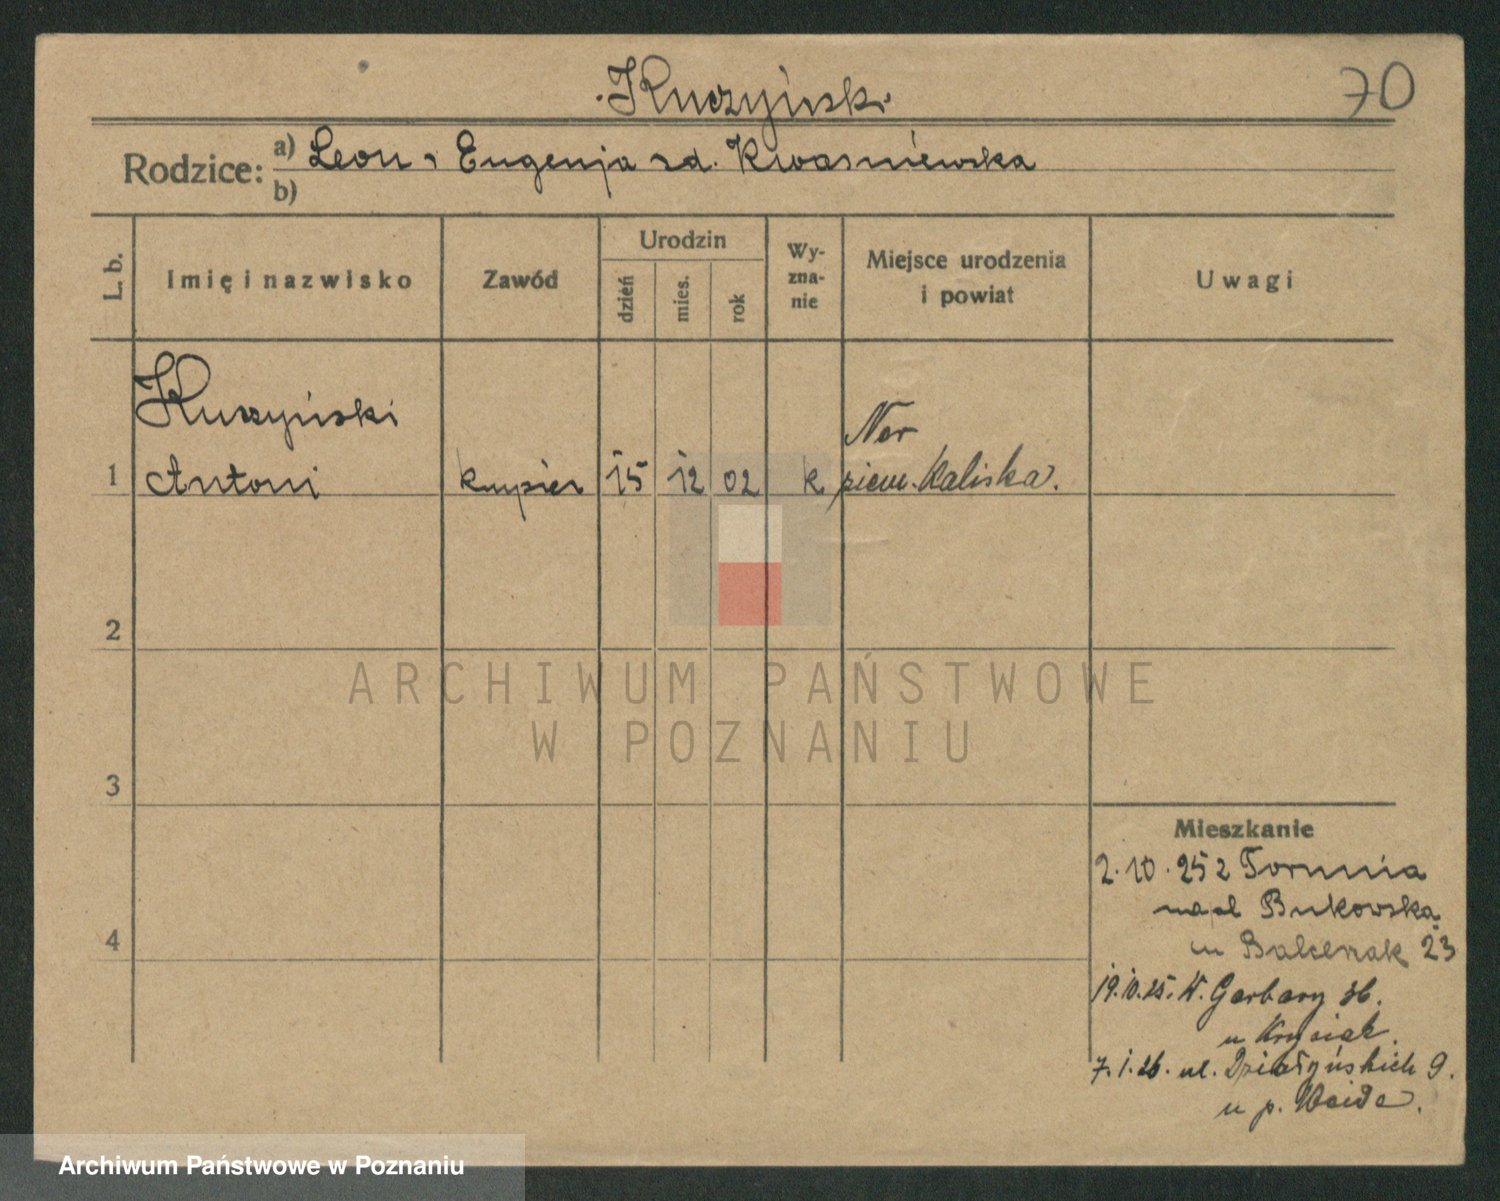 Kuczyński
70
Rodzice: a) Leon i Eugenja zd. Kwaśniewska
b)
L. b.
Imię i nazwisko
Zawód
Urodzin
dzień
mies.
rok
Wy-
zna-
nie
Miejsce urodzenia
i powiat
Uwagi
Kuczyński
1 Antoni kupiec 15 12 02 k
ziem. Kaliska.
2
3
4
ARCHIWUM PAŃSTWOWE
W POZNANIU
Mieszkanie
2.10.25 z Torunia
Bukowska
u Balcerzak 23
19.10.25. W. Garbary 36.
u Krysiak.
7.1.26. ul. Działyńskich 9.
u p.
Archiwum Państwowe w Poznaniu